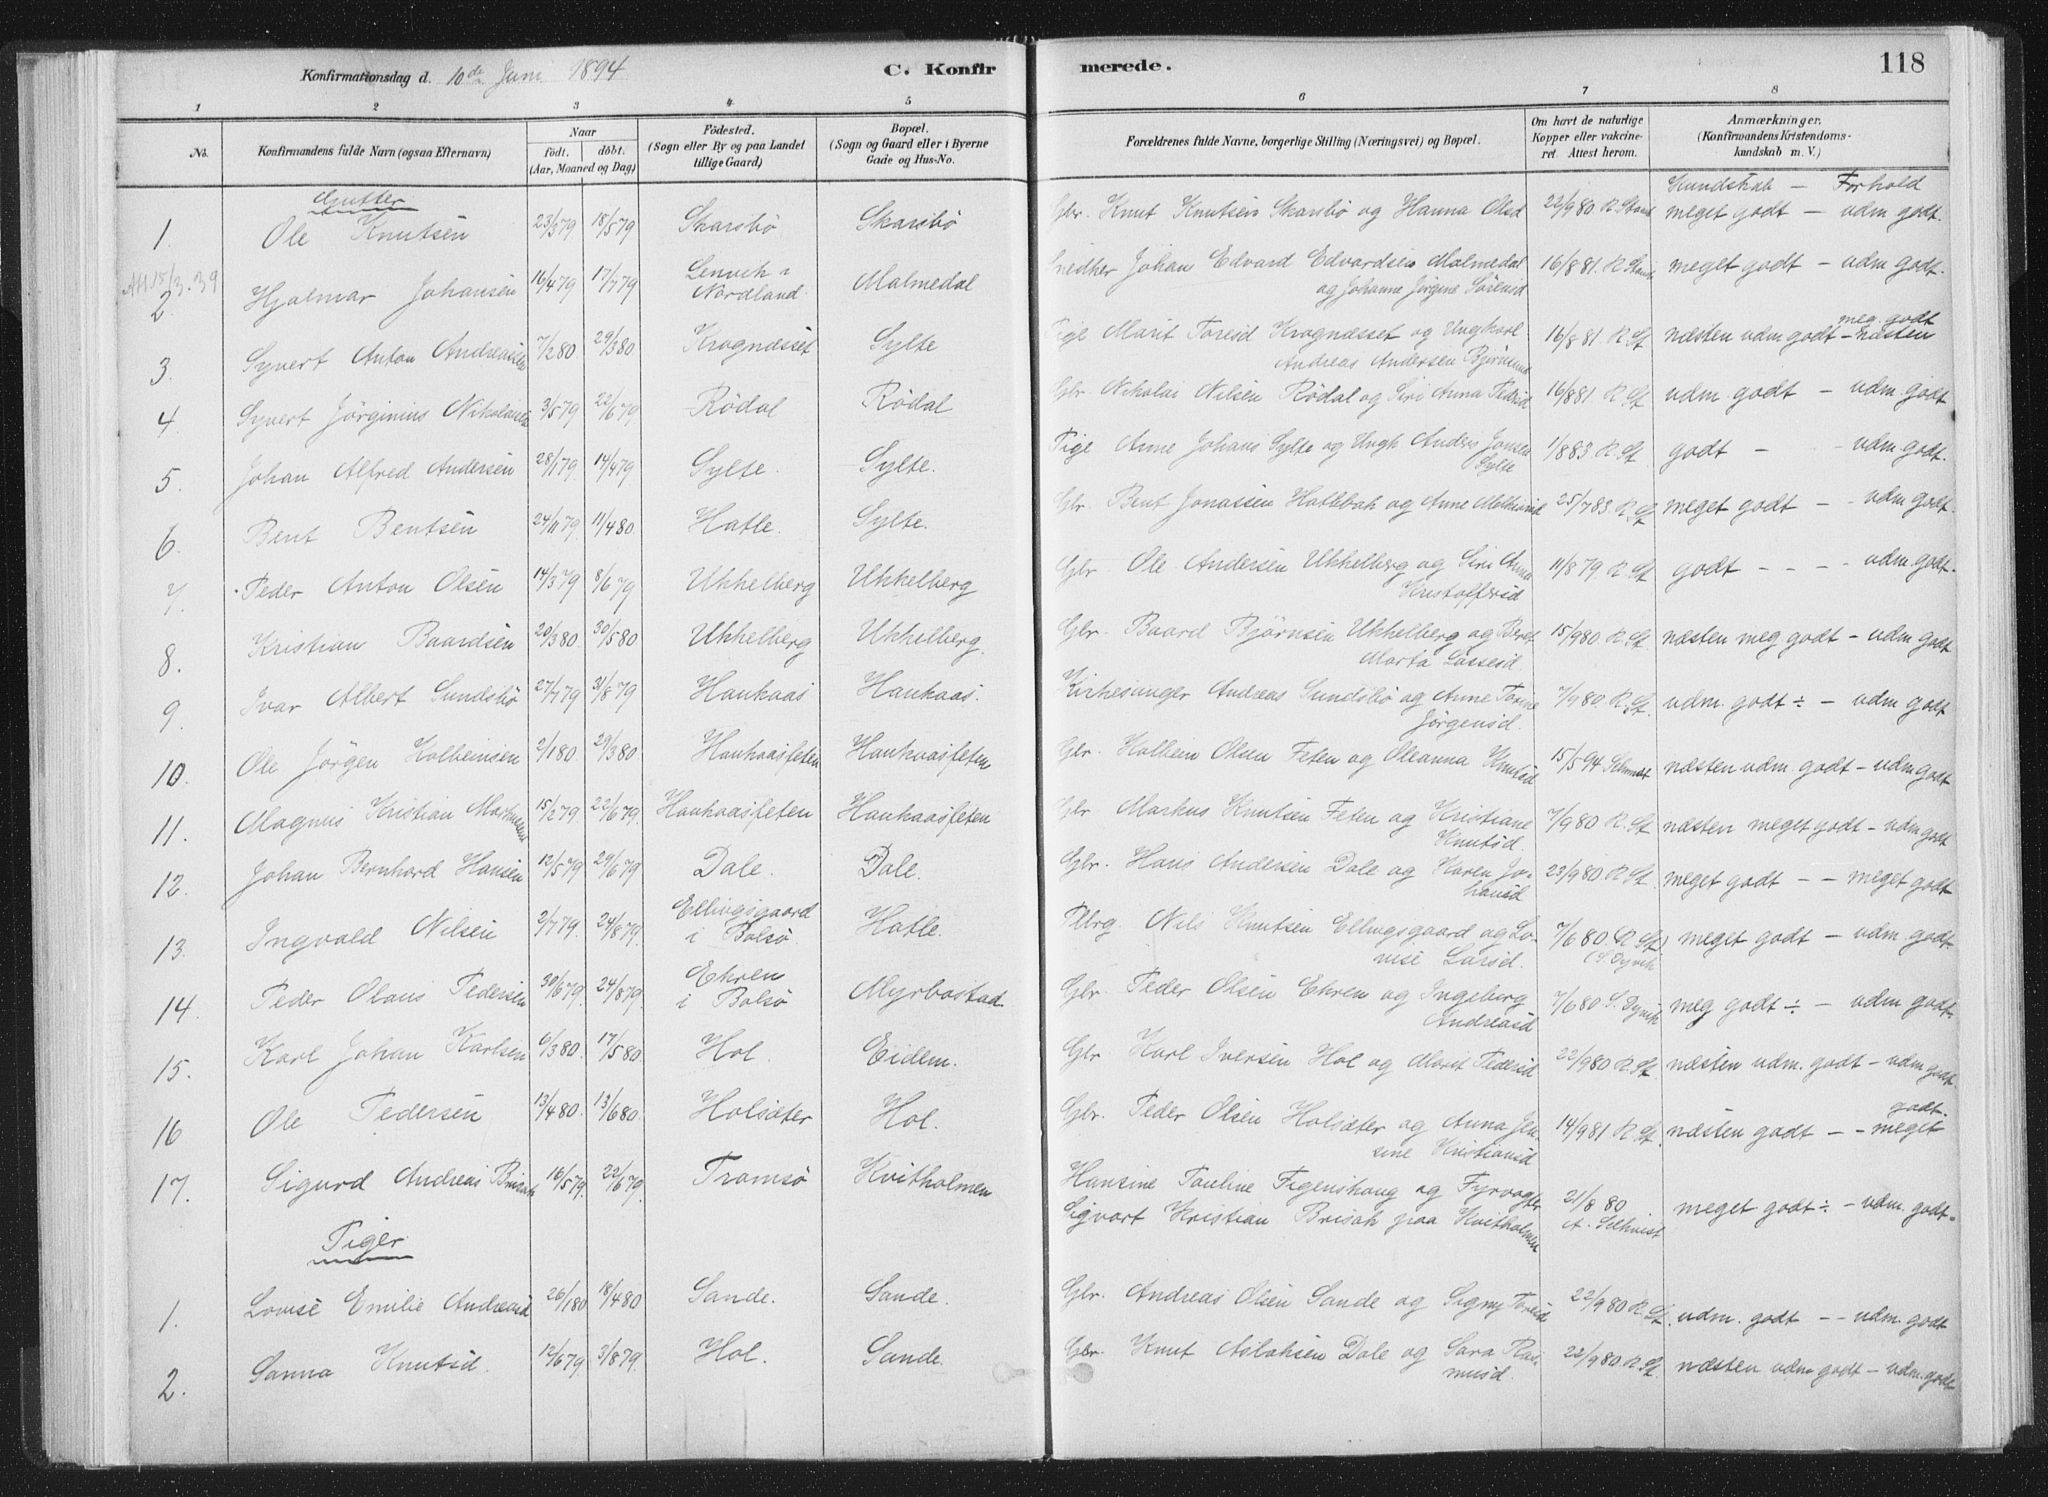 Konfirmationsdag d. 10de Juni 1894
C. Konfirmerede.
118
1 2 3 4 5 6 7 8
No.
Konfirmandens fulde Navn (ogsaa Efternavn)
Naar
födt. döbt.
(Aar, Moaned og Dag)
Födested.
(Sogn eller By og paa Landet
tillige Gaard)
Bopæl.
(Sogn og Gaard eller i Byerne
Gade og Hus-No.
Forældrenes fulde Navne, borgerlige Stilling (Næringsvei) og Bopæl.
Om havt de naturlige
Kopper eller vakcine-
ret. Attest herom.
Anmærkninger.
(Konfirmandens Kristendoms-
kundskab m. V.)
Gutter
Kundskab — Forhold
1. Ole Knutsen 23/3 79 18/5 79 Skarsbö Skarsbö Gbr. Knut Knutsen Skarsbö og Hanna Olsd 22/9 80 R. meget godt — udm godt.
Att. 15/3.39
2. Hjalmar Johansen 16/4 79 17/7 79 Lenvik i Nordland Malmedal Snedker Johan Edvard Edvardsen Malmedal
og Johanne Jörgine Sörensd 16/8 81 R. meget godt — udm godt.
3. Syvert Anton Andreassen 7/2 80 29/3 80 Krognæsset Sylte Pige Marit Toresd Krognæsset og Ungkarl
Andreas Andersen Björnsund 16/8 81 R. St. næsten udm godt — næsten meg. godt
4. Syvert Jörginius Nikolaisen 3/5 79 22/6 79 Rödal Rödal Gbr. Nikolai Nilsen Rödal og Siri Anna Pedersd 16/8 81 R. St. udm. godt — udm. godt
5. Johan Alfred Andersen 28/1 79 14/4 79 Sylte. Sylte. Pige Anne Johans Sylte og Ungk Anders Jonsen
Sylte 1/8 83 R. St. godt — udm. godt.
6. Bent Bentsen 24/11 79 11/4 80 Hatle. Sylte. Gbr. Bent Jonassen Hatlebak og Anne 25/7 83 R. St. meget godt — udm godt.
7. Peder Anton Olsen 14/3 79 8/6 79 Ukkelberg Ukkelberg Gbr. Ole Andersen Ukkelberg og Siri Anna
Kristoffersd 11/8 79 R. St. godt — — — udm godt.
8. Kristian Baardsen 20/3 80. 30/5 80 Ukkelberg Ukkelberg. Gbr. Baard Björnsen Ukkelberg og Beret
Marta Lassesd. 15/9 80 R. St. næsten meg godt — udm. godt
9. Ivar Albert Sundsbö 27/7 79 31/8 79 Haukaas Haukaas. Kirkesanger Andreas Sundsbö og Anne Torine
Jörgensd. 7/9 80. R. St. udm. godt ÷ — udm godt
10. Ole Jörgen Kolbeinsen 2/1 80 29/3 80 Haukaasfeten Haukaasfeten Gbr. Kolbein Olsen Feten og Oleanna Knutsd 15/5 94 næsten udm. godt — udm godt
11. Magnus Kristian Markussen 15/2 79. 22/6 79. Haukaasfeten Haukaasfeten Gbr Markus Knutsen Feten og Kristiane
Knutsd. 7/9 80 R. St. næsten meget godt — udm godt
12. Johan Bernhard Hansen 12/5 79 29/6 79 Dale. Dale. Gbr. Hans Andersen Dale og Karen Jo-
hansd. 23/9 80 R. St. meget godt — — meget godt
13. Ingvald Nilsen 2/7 79. 24/8 79. Ellingsgaard
i Bolsö. Hatle. Nils Knutsen Ellingsgaard og Lo-
vise Larsd. 7/6 80. (R. St.)
(S. Dyvik meget godt — udm. godt.
14. Peder Olaus Pedersen 30/6 79. 24/8 79. Ekren
i Bolsö Myrbostad. Gbr. Peder Olsen Ekren og Ingeberg
Andreasd 7/6 80 S. Dyvik meg godt ÷ — udm godt.
15. Karl Johan Karlsen 6/3 80. 17/5 80 Hol. Eidem. Gbr. Karl Iversen Hol og Marit Pedersd 22/9 80 R. St. næsten udm. godt — udm godt.
16 Ole Pedersen 13/4 80. 13/6 80. Holsæter Hol. Gbr. Peder Olsen Holsæter og Anna Jen-
sine Kristiansd 14/9 81 R. St. næsten godt — — meget godt.
17. Sigurd Andreas Brisak 16/5 79. 22/6 79. Tromsö Kvitholmen Hansine Pauline Figenskaug og Fyrvogter
Sigvart Kristian Brisak paa Kvitholmen 21/8 80 meget godt ÷ — udm. godt.
Piger
1. Lovise Emilie Andreasd 26/1 80 18/4 80 Sande. Sande. Gbr. Andreas Olsen Sande og Signy Toresd 22/9 80 R. St. udm. godt — — udm. godt
2. Sanna Knutsd. 12/6 79 3/8 79. Hol. Sande. Gbr. Knut Aslaksen Dale og Sara Ras-
musd. 22/9 80 R. St. næsten udm godt — udm. godt